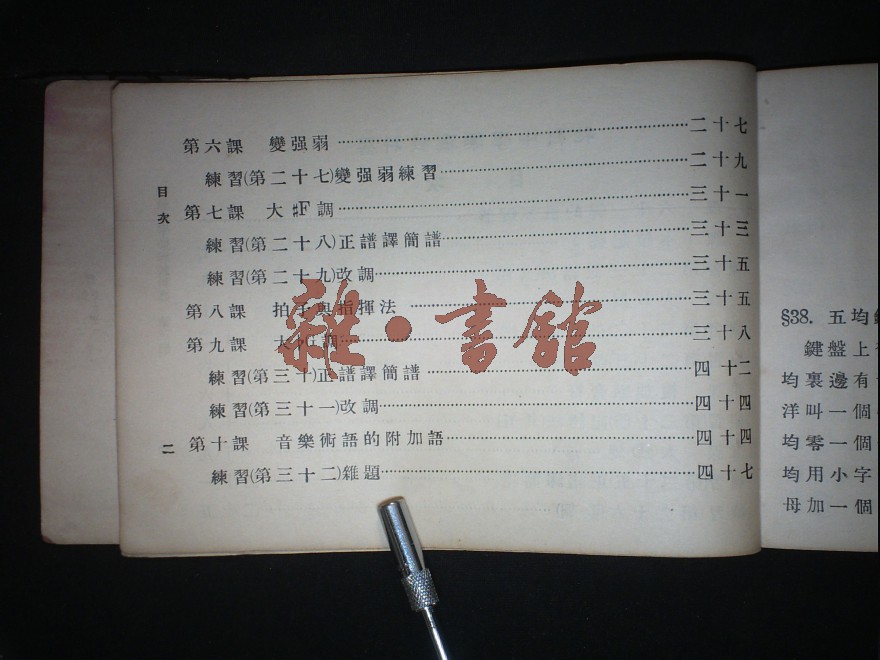 目次
第六課 變强弱……二十七
練習(第二十七)變强弱練習……二十九
第七課 大♯F調……三十一
練習(第二十八)正譜譯簡譜……三十三
練習(第二十九)改調……三十五
第八課 拍子與指揮法……三十五
第九課 大 調……三十八
練習(第三十)正譜譯簡譜……四十二
練習(第三十一)改調……四十四
第十課 音樂術語的附加語……四十四
練習(第三十二)雜題……四十七
二
雜·書館
§38. 五均
鍵盤上
均裏邊有
洋叫一個
均零一個
均用小字
母加一個